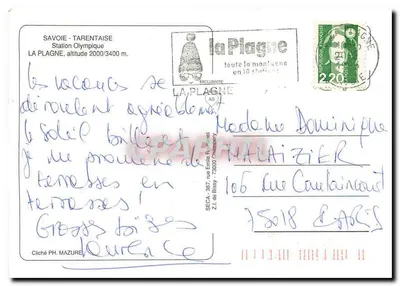 SAVOIE - TARENTAISE
Station Olympique
LA PLAGNE, altitude 2000/3400 m.
les vacances se
déroulent agréablement
le soleil brillant
je me promène de
terrasses en
terrasses!
Grosses bises
Laurence
Cliché PH. MAZURE
SECA - 367, rue Emile
Z.I. de Bissy - 73000 Chambéry
la Plagne
toute la montagne
en 10 stations
LA PLAGNE
2,20
Madame Dominique
MALAIZIER
106 rue Caulaincourt
75018 PARIS